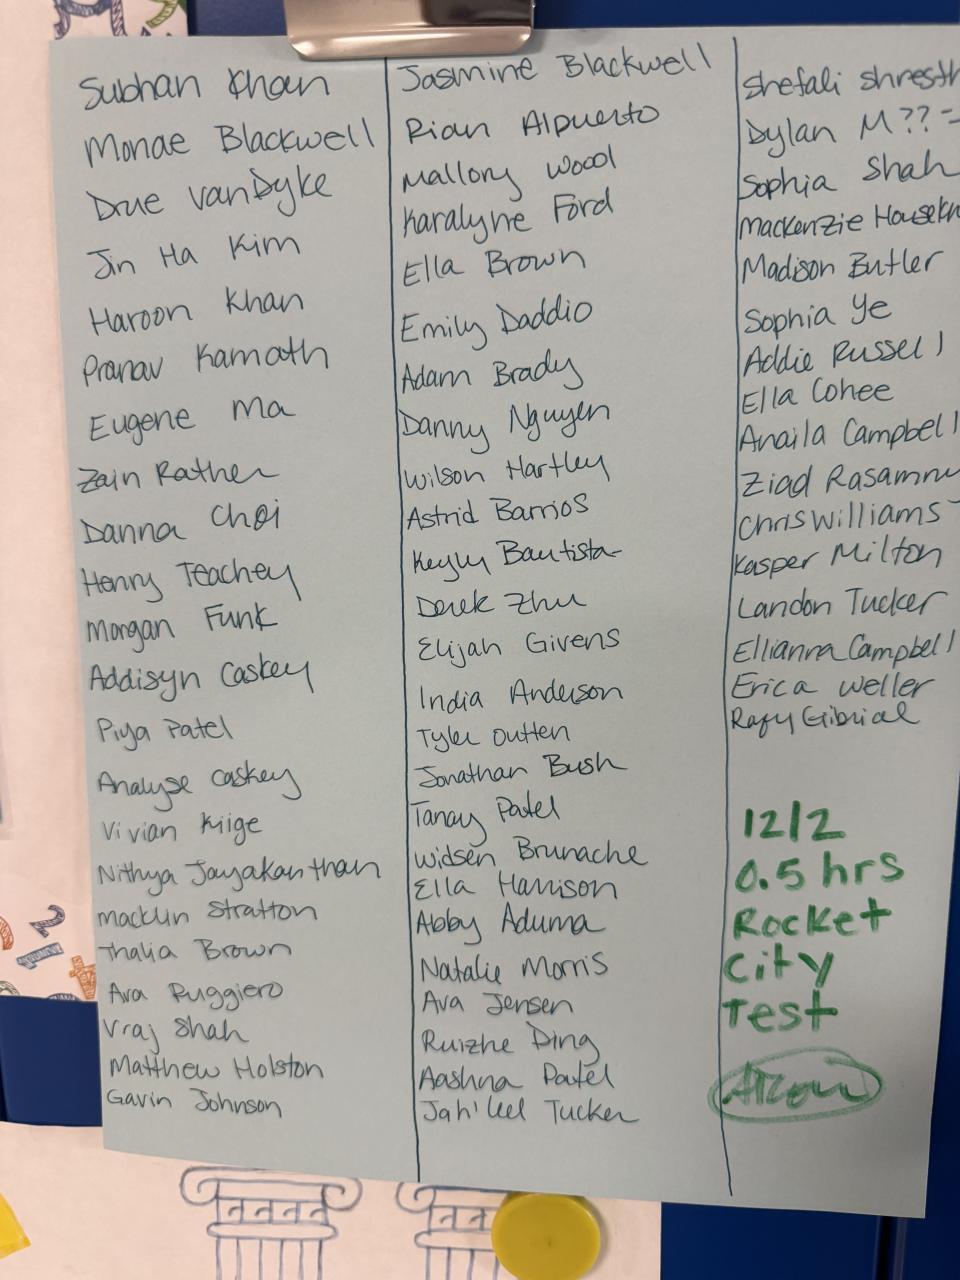 Subhan Khan
Monae Blackwell
Drue VanDyke
Jin Ha Kim
Haroon Khan
Pranav Kamath
Eugene Ma
Zain Rather
Danna Choi
Henry Teachey
Morgan Funk
Addisyn Caskey
Piya Patel
Analyse Caskey
Vivian Kiige
Nithya Jayakanthan
Macklin Stratton
Thalia Brown
Ava Ruggiero
Vraj Shah
Matthew Holston
Gavin Johnson
Jasmine Blackwell
Rian Alpuerto
Mallory Wood
Karalyne Ford
Ella Brown
Emily Daddio
Adam Brady
Danny Nguyen
Wilson Hartley
Astrid Barrios
Keyly Bautista
Derek Zhu
Elijah Givens
India Anderson
Tyler Outten
Jonathan Bush
Tanay Patel
Widsen Brunache
Ella Harrison
Abby Aduma
Natalie Morris
Ava Jensen
Ruizhe Ding
Aashna Patel
Tucker
Shefali Shresth
Dylan M??
Sophia Shah
Mackenzie
Madison Butler
Sophia Ye
Addie Russell
Ella Cohee
Anaila Campbell
Ziad
Chris Williams
Kasper Milton
Landon Tucker
Ellianna Campbell
Erica Weller
Rafy
12/2
0.5 hrs
Rocket
City
Test